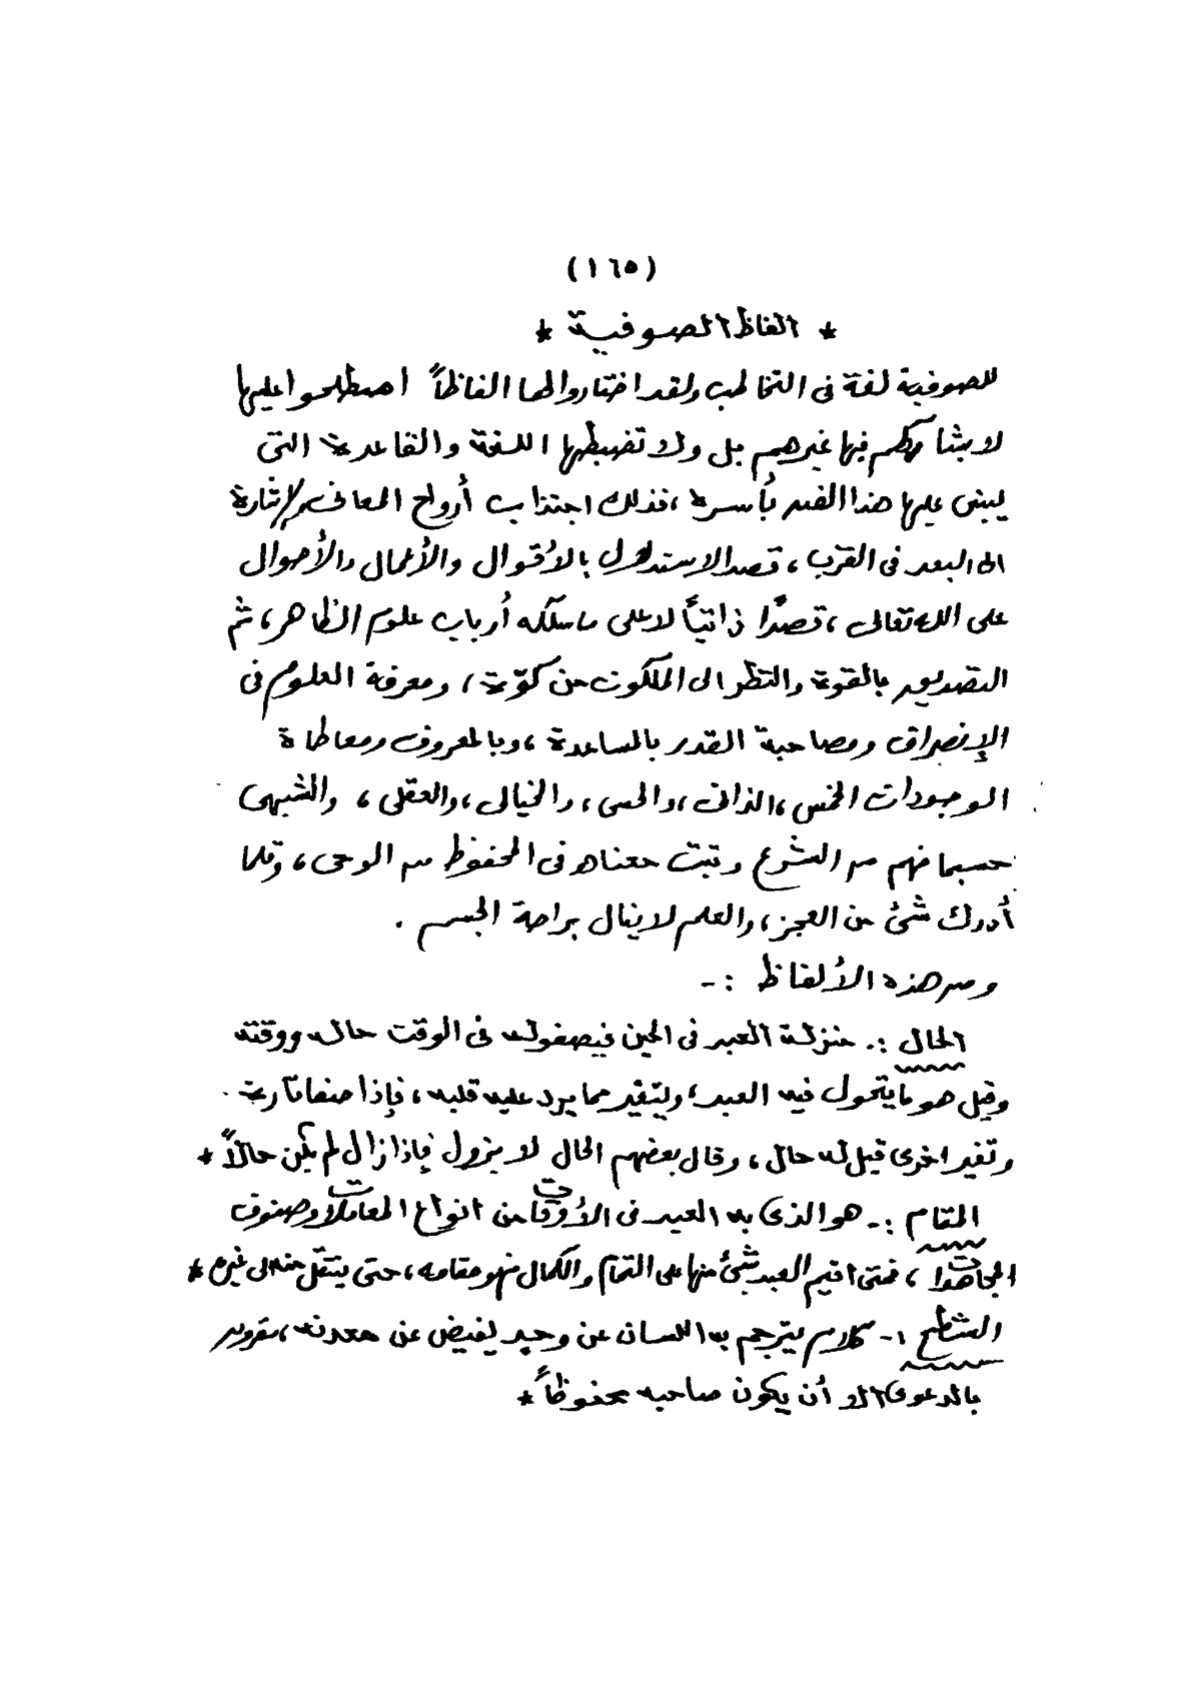 (١٦٥)
* الفاظ الصوفية *
للصوفية لغة فى التخاطب ولقد اختاروا لها الفاظاً اصطلحوا عليها
لا يشاركهم فيها غيرهم بل ولا تضبطها اللغة والقاعدة التى
يبنى عليها هذا الفن بأسره ، فذلك اجتذاب أرواح المعانى والإشارة
الى البعد فى القرب ، قصد الاستدلال بالأقوال والأعمال والأحوال
على الله تعالى ، قصدًا ذاتيًا لا على ما سلكه أرباب علوم الظاهر ، ثم
التصديق بالقوة والنظر الى الملكوت من كوّة ، ومعرفة العلوم فى
الإنصراف ومصاحبة القدر بالمساعدة ، وبالمعروف ومعاطاة
الوجودات الخمس ، الذاتى ، والحسى ، والخيالى ، والعقلى ، والشبهى
حسبما فهم من الشرع وتبت معناه فى المحفوظ من الوحى ، وقلما
أدرك شئ من العجز ، والعلم لا ينال براحة الجسم .
ومن هذه الألفاظ :-
الحال :- منزلة العبد فى الحين فيصفو له فى الوقت حاله ووقته
وقيل هو ما يتحول فيه العبد ، ويتغير مما يرد عليه قلبه ، فإذا صفا تارة
وتغير اخرى قيل له حال ، وقال بعضهم الحال لا يزول فإذا زال لم يكن حالاً *
المقام :- هو الذى به العبد فى الأوقات من انواع المعاملات وصنوف
المجاهدات ، فمتى اقيم العبد بشئ منها على التمام والكمال فهو مقامه ، حتى ينتقل منه الى غيره *
الشطح :- كلام يترجم به اللسان عن وجد يفيض عن معدنه ، مقرون
بالدعوى الا أن يكون صاحبه محفوظاً *